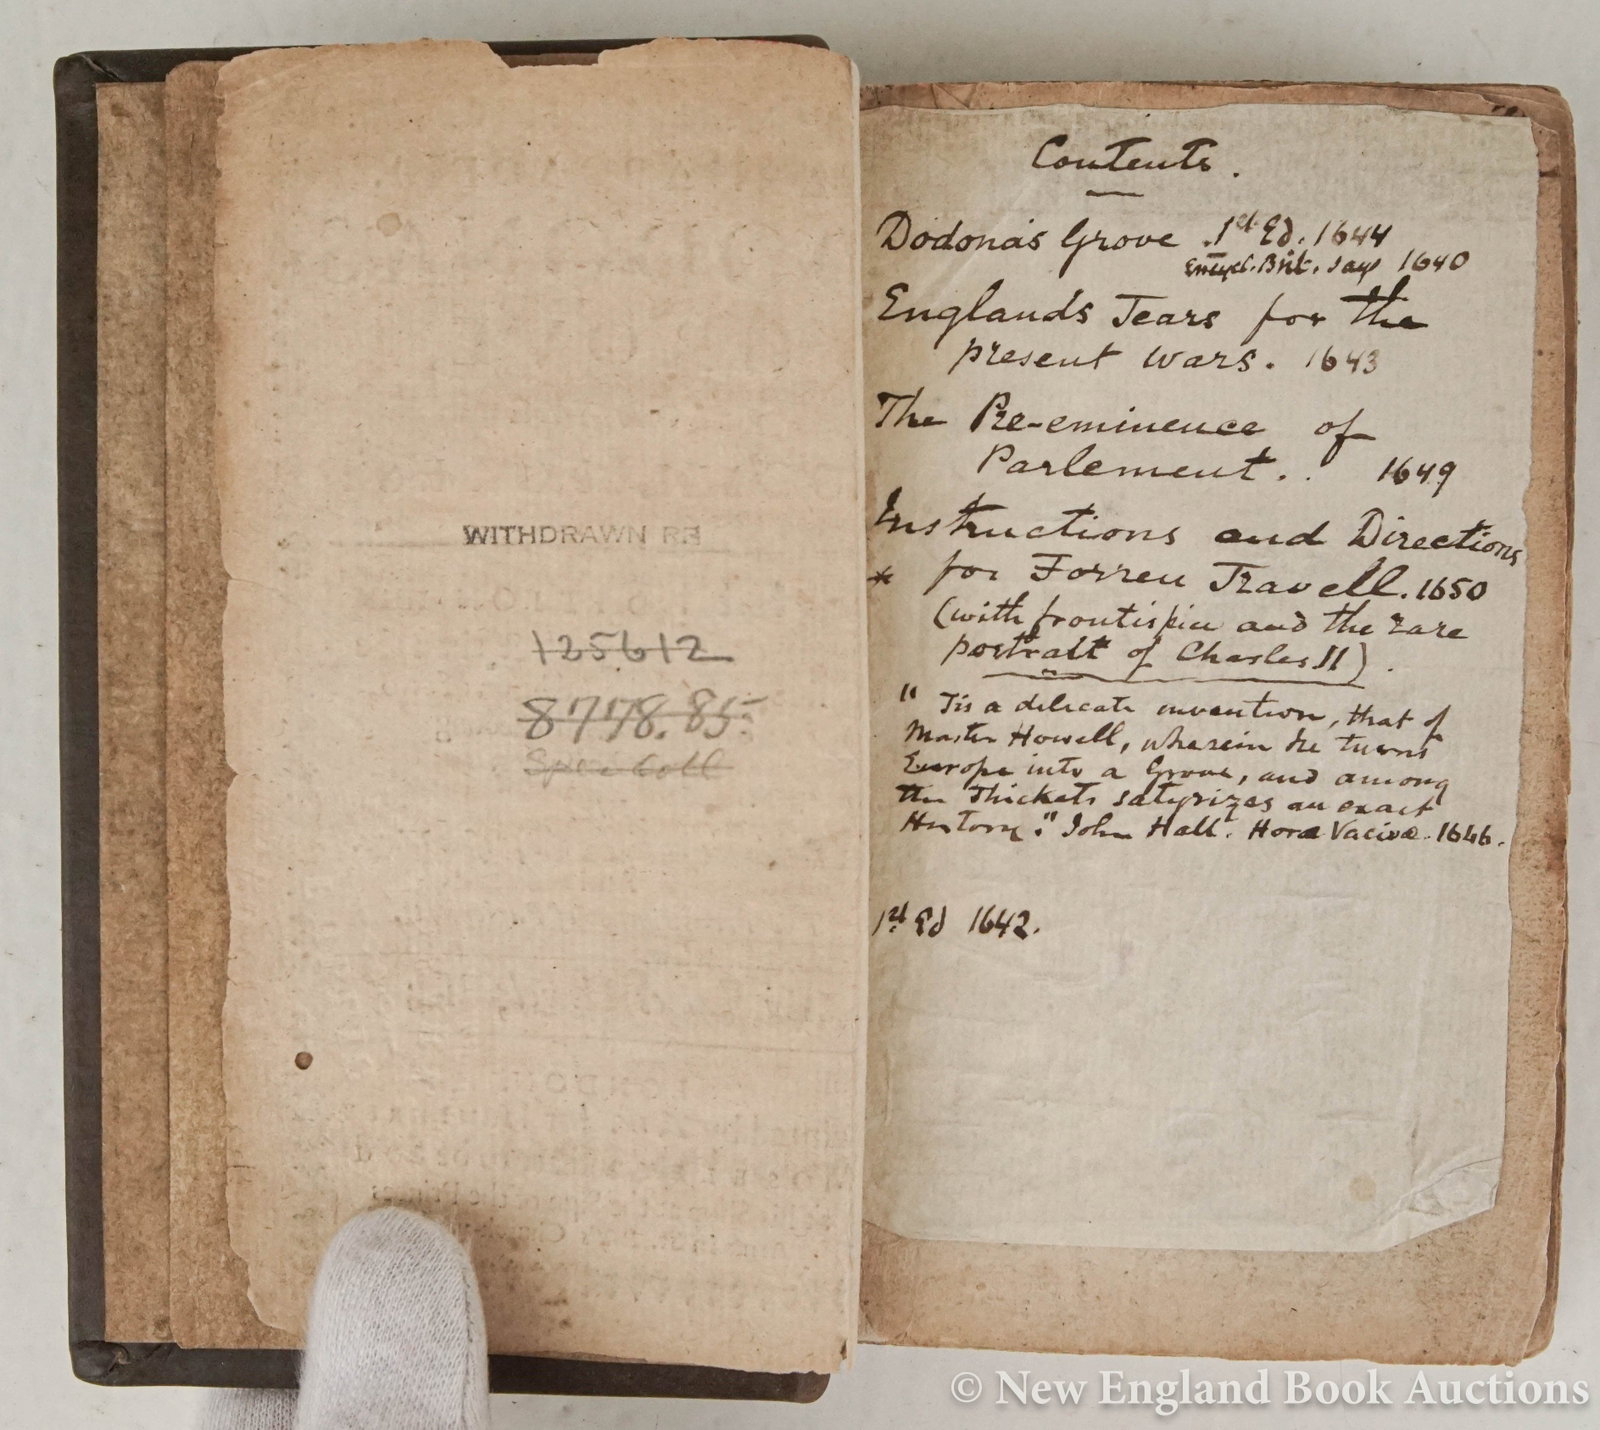 WITHDRAWN
125612
8778.85
Spec Coll
Contents.
Dodona's Grove. 1st Ed. 1644
Encycl. Brit. says 1640
Englands Tears for the
present wars. 1643
The Pre-eminence of
Parlement.. 1649
Instructions and Directions
* for Forren Travell. 1650
(with frontispice and the rare
portrait of Charles II).
" Tis a delicate invention, that of
Master Howell, wherein he turns
Europe into a Grove, and among
the Thickets satyrizes an exact
History." John Hall. Horæ Vacivæ. 1646.
1st Ed 1642.
LONDON
© New England Book Auctions